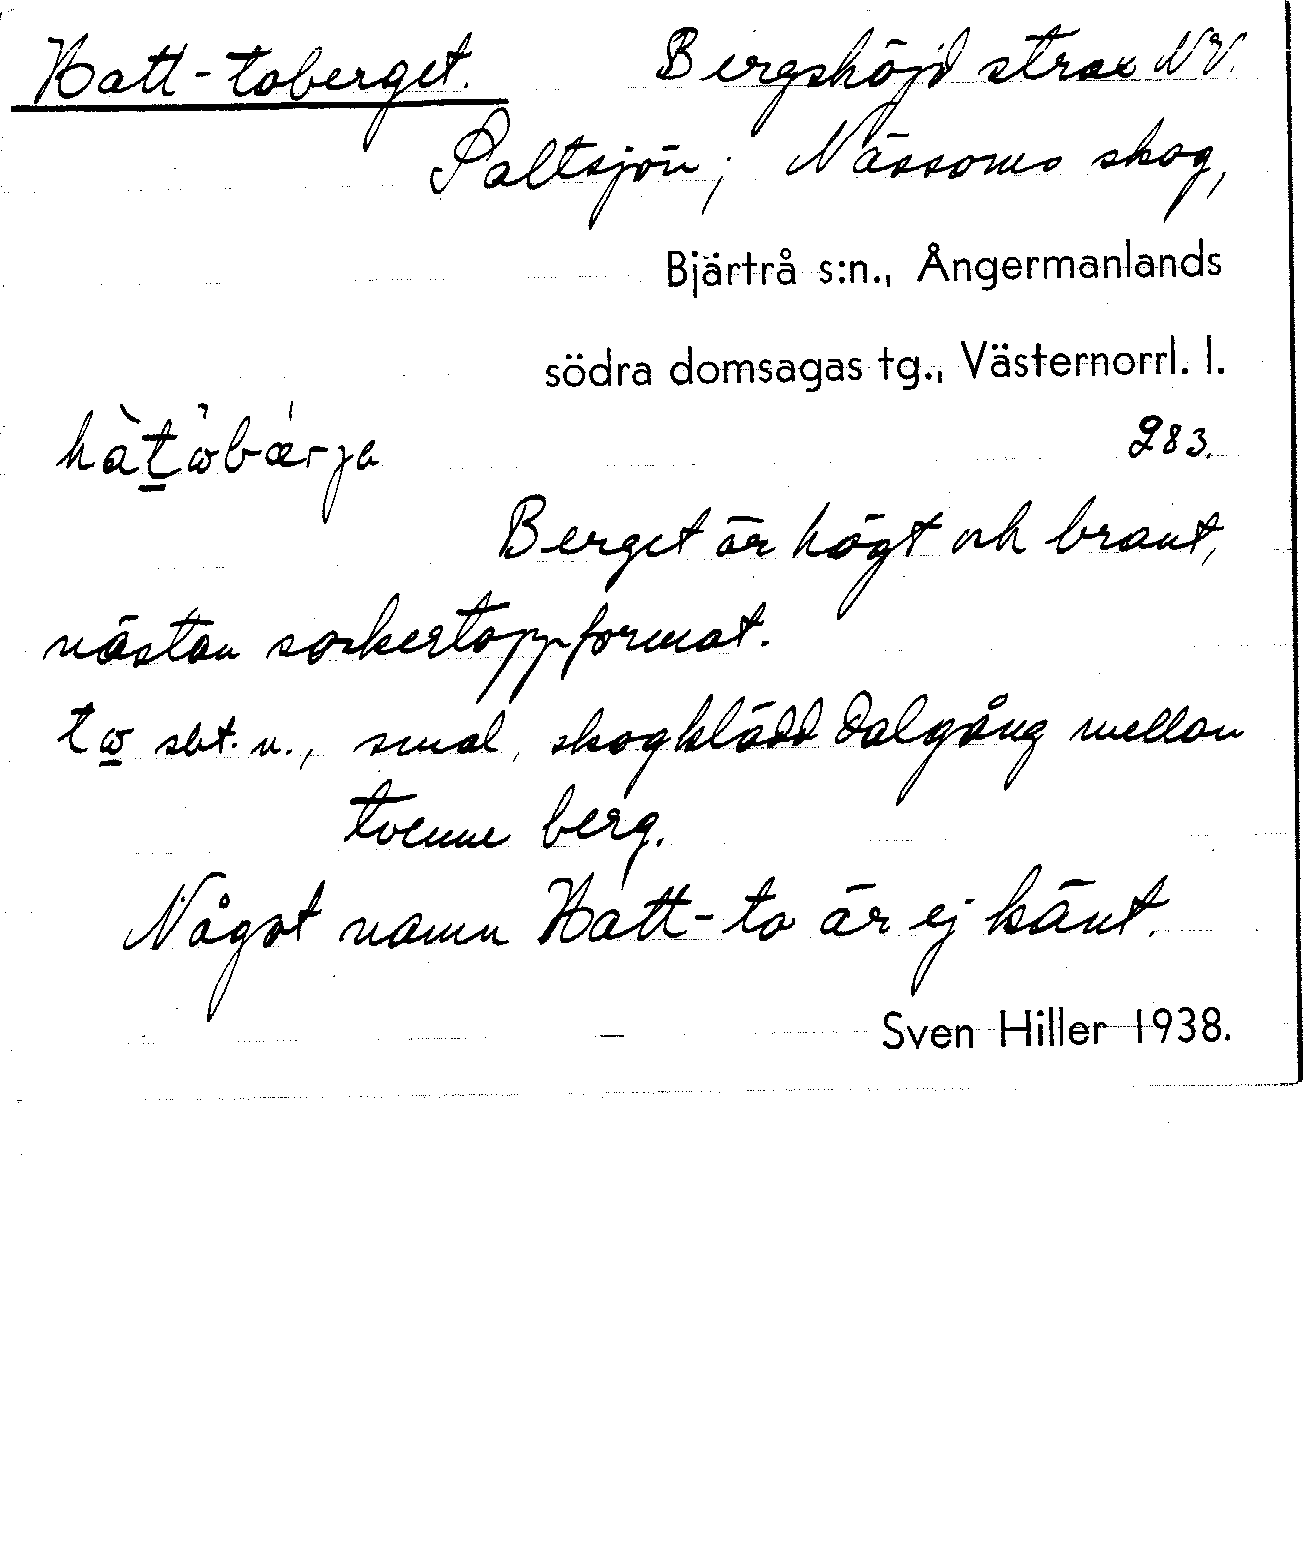 Hatt-toberget. Bergshöjd strax NV.
Saltsjön; Nässoms skog,
Bjärtrå s:n., Ångermanlands
södra domsagas tg., Västernorrl. l.
hàt̲ωbærja 283.
Berget är högt och brant,
nästan sockertoppformat.
tω̲ sbt. n., smal, skogklädd dalgång mellan
tvenne berg.
Något namn Hatt-to är ej känt.
Sven Hiller 1938.